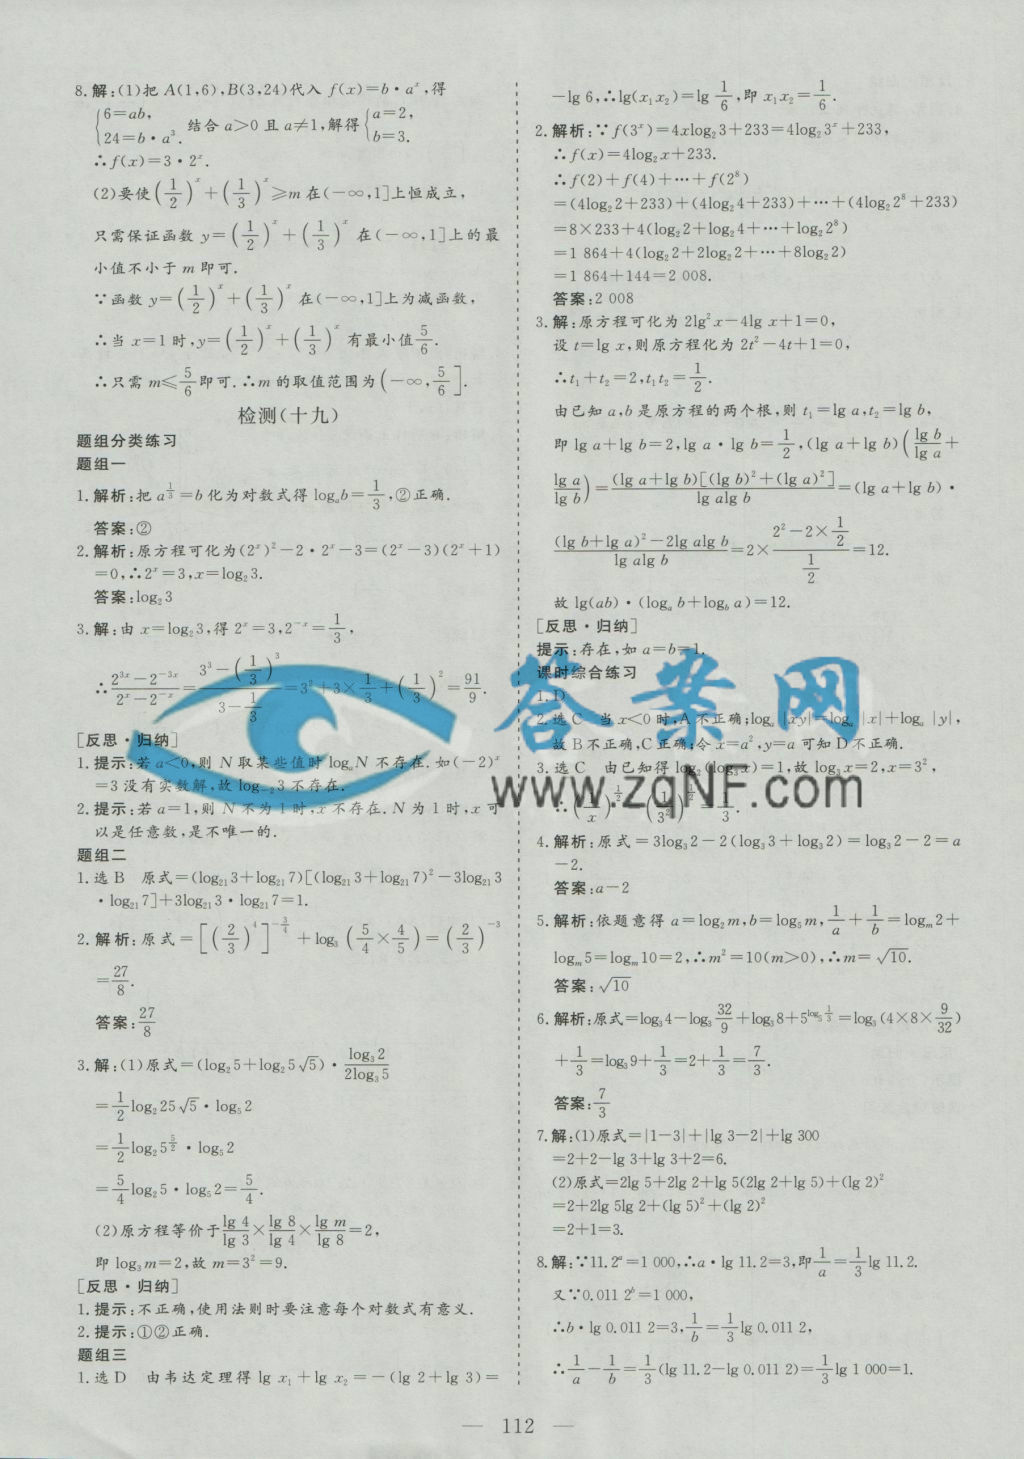 8.解:(1)把 A(1,6),B(3,24)代入 f(x)=b·aˣ,得
{6=ab, 24=b·a³. 结合 a>0 且 a≠1,解得{a=2, b=3.
∴f(x)=3·2ˣ.
(2)要使(1/2)ˣ+(1/3)ˣ≥m 在(-∞,1]上恒成立,
只需保证函数 y=(1/2)ˣ+(1/3)ˣ 在(-∞,1]上的最
小值不小于 m 即可.
∵函数 y=(1/2)ˣ+(1/3)ˣ 在(-∞,1]上为减函数,
∴当 x=1 时,y=(1/2)ˣ+(1/3)ˣ 有最小值5/6.
∴只需 m≤5/6即可.∴m 的取值范围为(-∞,5/6].
检测(十九)
题组分类练习
题组一
1.解析:把 a^(1/3)=b 化为对数式得 logₐb=1/3,②正确.
答案:②
2.解析:原方程可化为(2ˣ)²-2·2ˣ-3=(2ˣ-3)(2ˣ+1)
=0,∴2ˣ=3,x=log₂3.
答案:log₂3
3.解:由 x=log₂3,得 2ˣ=3,2⁻ˣ=1/3,
∴(2³ˣ-2⁻³ˣ)/(2ˣ-2⁻ˣ)=(3³-(1/3)³)/(3-1/3)=3²+3×1/3+(1/3)²=91/9.
[反思·归纳]
1.提示:若 a<0,则 N 取某些值时 logₐN 不存在.如(-2)ˣ
=3 没有实数解,故 log₋₂3 不存在.
2.提示:若 a=1,则 N 不为 1 时,x 不存在.N 为 1 时,x 可
以是任意数,是不唯一的.
题组二
1.选 B 原式=(log₂₁3+log₂₁7)[(log₂₁3+log₂₁7)²-3log₂₁3
·log₂₁7]+3log₂₁3·log₂₁7=1.
2.解析:原式=[(2/3)⁴]^(-3/4)+log₃(5/4×4/5)=(2/3)⁻³
=27/8.
答案:27/8
3.解:(1)原式=(log₂5+log₂5√5)·log₃2/2log₃5
=1/2log₂25√5·log₅2
=1/2log₂5^(5/2)·log₅2
=5/4log₂5·log₅2=5/4.
(2)原方程等价于lg 4/lg 3×lg 8/lg 4×lg m/lg 8=2,
即 log₃m=2,故 m=3²=9.
[反思·归纳]
1.提示:不正确,使用法则时要注意每个对数式有意义.
2.提示:①②正确.
题组三
1.选 D 由韦达定理得 lg x₁+lg x₂=-(lg 2+lg 3)=
-lg 6,∴lg(x₁x₂)=lg 1/6,即 x₁x₂=1/6.
2.解析:∵f(3ˣ)=4xlog₂3+233=4log₂3ˣ+233,
∴f(x)=4log₂x+233.
∴f(2)+f(4)+…+f(2⁸)
=(4log₂2+233)+(4log₂4+233)+…+(4log₂2⁸+233)
=8×233+4(log₂2+log₂4+…+log₂2⁸)
=1 864+4(log₂2+2log₂2+…+8log₂2)
=1 864+144=2 008.
答案:2 008
3.解:原方程可化为 2lg²x-4lg x+1=0,
设 t=lg x,则原方程化为 2t²-4t+1=0,
∴t₁+t₂=2,t₁t₂=1/2.
由已知 a,b 是原方程的两个根,则 t₁=lg a,t₂=lg b,
即 lg a+lg b=2,lg a·lg b=1/2,(lg a+lg b)(lg b/lg a+
lg a/lg b)=(lg a+lg b)[(lg b)²+(lg a)²]/lg alg b=(lg a+lg b)·
(lg b+lg a)²-2lg alg b/lg alg b=2×(2²-2×1/2)/(1/2)=12.
故 lg(ab)·(logₐb+log_b a)=12.
[反思·归纳]
提示:存在,如 a=b=1.
课时综合练习
1.D
2.选 C 当 x<0 时,A 不正确;logₐ|xy|=logₐ|x|+logₐ|y|,
故 B 不正确,C 正确;令 x=a²,y=a 可知 D 不正确.
3.选 C 由已知得 log₂(log₃x)=1,故 log₃x=2,x=3²,
∴(1/x)^(1/2)=(1/3²)^(1/2)=1/3.
4.解析:原式=3log₃2-2(log₃3+log₃2)=log₃2-2=a
-2.
答案:a-2
5.解析:依题意得 a=log₂m,b=log₅m,1/a+1/b=logₘ2+
logₘ5=logₘ10=2,∴m²=10(m>0),∴m=√10.
答案:√10
6.解析:原式=log₃4-log₃32/9+log₃8+5^(log₅1/3)=log₃(4×8×9/32)
+1/3=log₃9+1/3=2+1/3=7/3.
答案:7/3
7.解:(1)原式=|1-3|+|lg 3-2|+lg 300
=2+2-lg 3+lg 3+2=6.
(2)原式=2lg 5+2lg 2+lg 5(2lg 2+lg 5)+(lg 2)²
=2+2lg 5lg 2+(lg 5)²+(lg 2)²
=2+1=3.
8.解:∵11.2ᵃ=1 000,∴a·lg 11.2=3,即1/a=1/3lg 11.2.
又∵0.011 2ᵇ=1 000,
∴b·lg 0.011 2=3,1/b=1/3lg 0.011 2,
∴1/a-1/b=1/3(lg 11.2-lg 0.011 2)=1/3lg 1 000=1.
答案网
www.zqNF.com
— 112 —